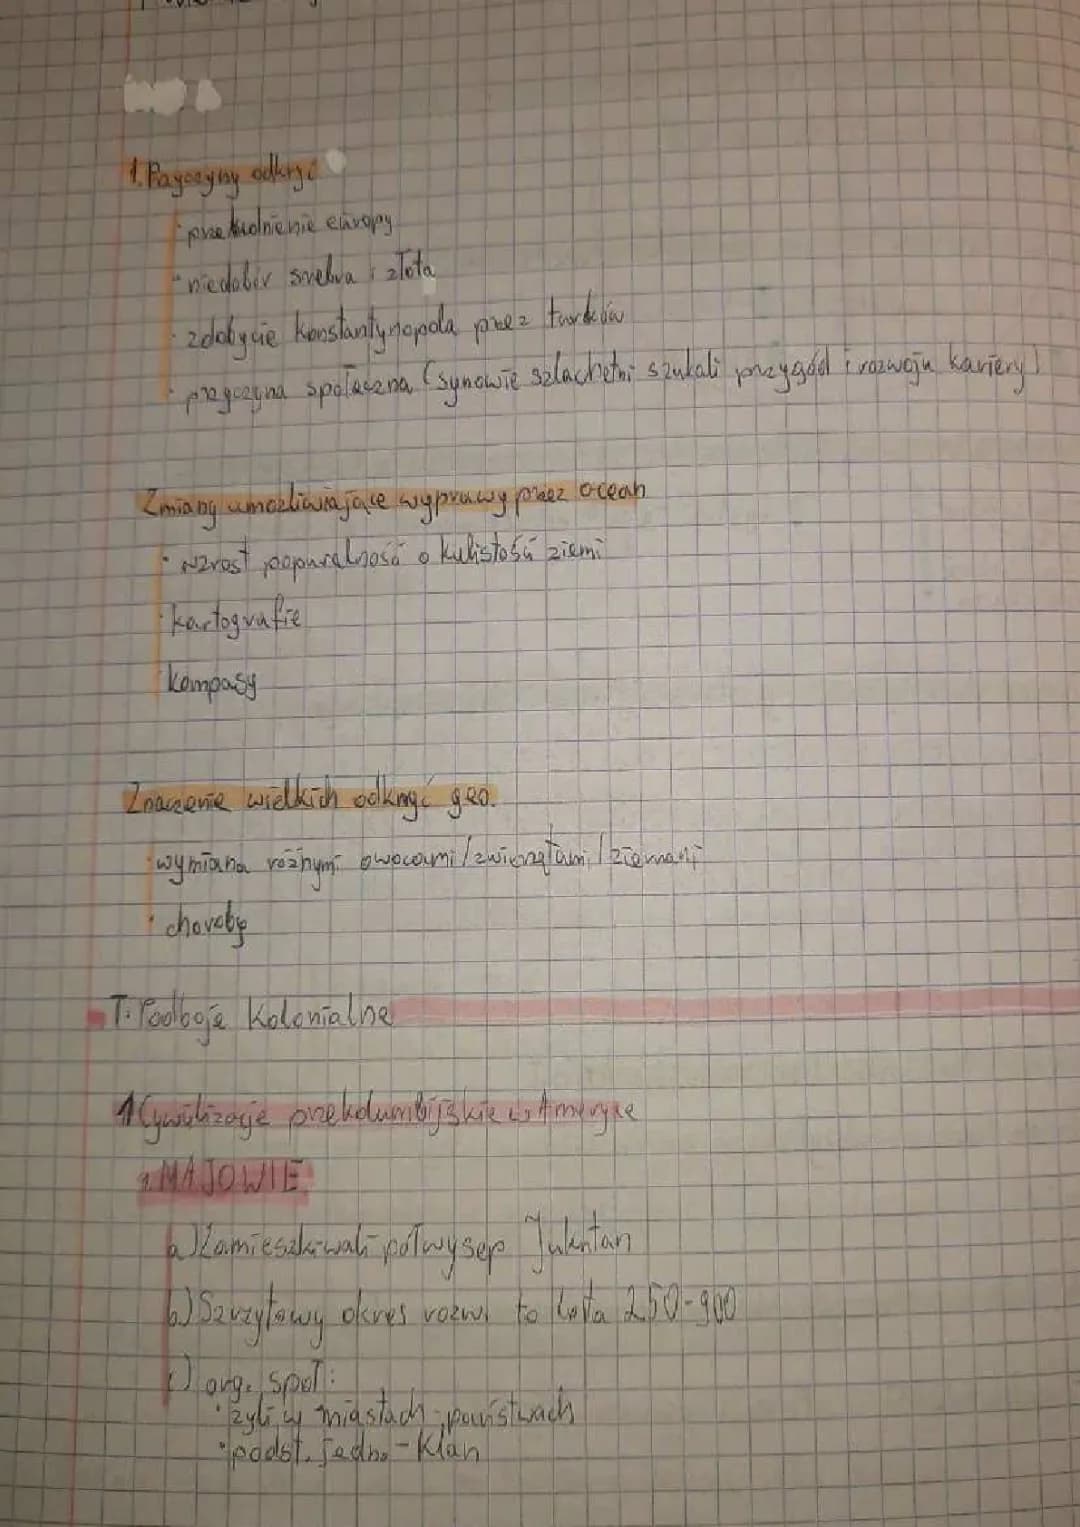 1. Przyczyny odkryć
· przeludnienie europy
· niedobór srebra i złota
· zdobycie Konstantynopola przez turków
· przyczyna społeczna (synowie szlachetni szukali przygód i rozwoju kariery)
Zmiany umożliwiające wyprawy przez ocean
· wzrost popuralność o kulistość ziemi
· kartografie
· kompasy
Znaczenie wielkich odkryć geo.
· wymiana różnymi owocami/zwierzętami/ziemani
· choroby
T: Podboje kolonialne
1 Cywilizacje prekolumbijskie w Ameryce
1. MAJOWIE
a) Zamieszkiwali półwysep Jukatan
b) Szczytowy okres rozw. to lata 250-900
c) org. społ:
· żyli w miastach-państwach
· podst. jedno - klan